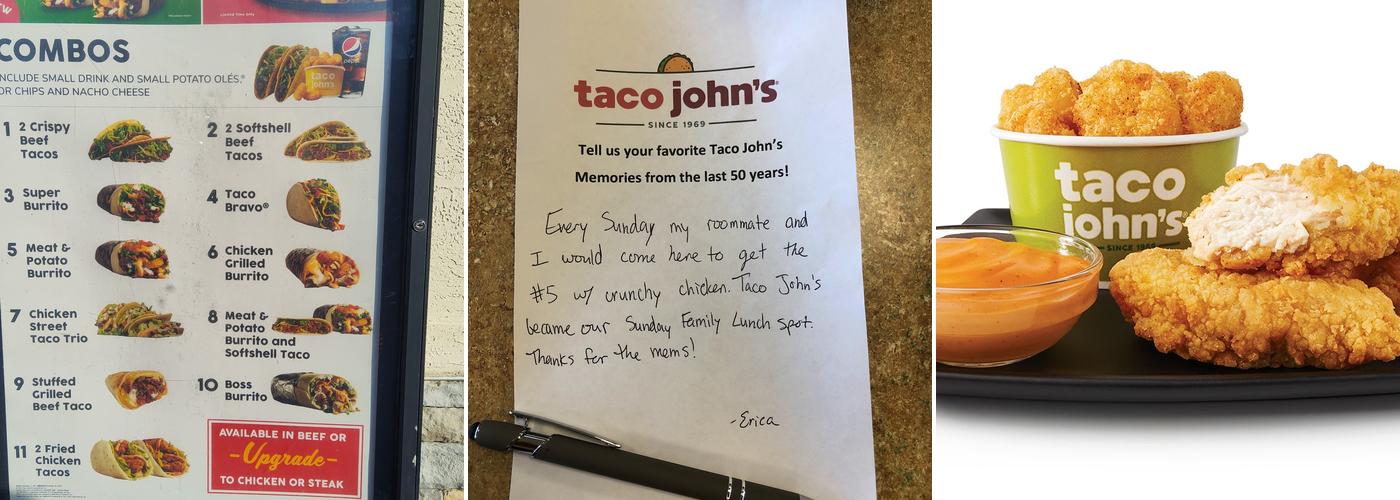 Limited Time Only
COMBOS
INCLUDE SMALL DRINK AND SMALL POTATO OLÉS.®
OR CHIPS AND NACHO CHEESE
pepsi
taco
john's
1 2 Crispy
Beef
Tacos
2 2 Softshell
Beef
Tacos
3 Super
Burrito
4 Taco
Bravo®
5 Meat &
Potato
Burrito
6 Chicken
Grilled
Burrito
7 Chicken
Street
Taco Trio
8 Meat &
Potato
Burrito and
Softshell Taco
9 Stuffed
Grilled
Beef Taco
10 Boss
Burrito
11 2 Fried
Chicken
Tacos
AVAILABLE IN BEEF OR
-Upgrade-
TO CHICKEN OR STEAK
taco john's®
SINCE 1969
Tell us your favorite Taco John's
Memories from the last 50 years!
Every Sunday my roommate and
I would come here to get the
#5 w/ crunchy chicken. Taco John's
became our Sunday Family Lunch spot.
Thanks for the mems!
-Erica
taco
john's
SINCE 1969